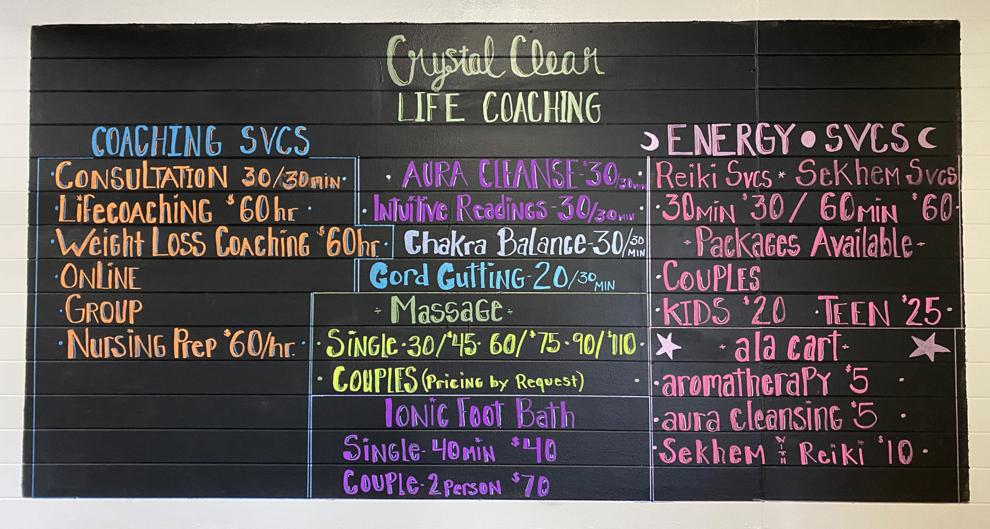 Crystal Clear
LIFE COACHING
COACHING SVCS
·CONSULTATION 30/30min·
·Lifecoaching $60hr ·
·Weight Loss Coaching $60hr·
·ONLINE
·GROUP
·Nursing Prep $60/hr.·
· AURA CLEANSE-$30/30min
·Intuitive Readings-30/30min
Chakra Balance-30/30 MIN
Gord Gutting-20/30 MIN
÷ Massage ÷
·Single·30/$45· 60/$75·90/$110·
· COUPLES (Pricing by Request) ·
Ionic Foot Bath
Single-40min $40
Couple-2Person $70
ENERGY • SVCS
Reiki Svcs * Sekhem Svcs
·30min $30 / 60min $60·
-Packages Available-
·COUPLES
·KIDS $20 ·TEEN $25·
- ala cart -
·aromatheraPy $5 ·
·aura cleansing $5 ·
·Sekhem WITH Reiki $10·